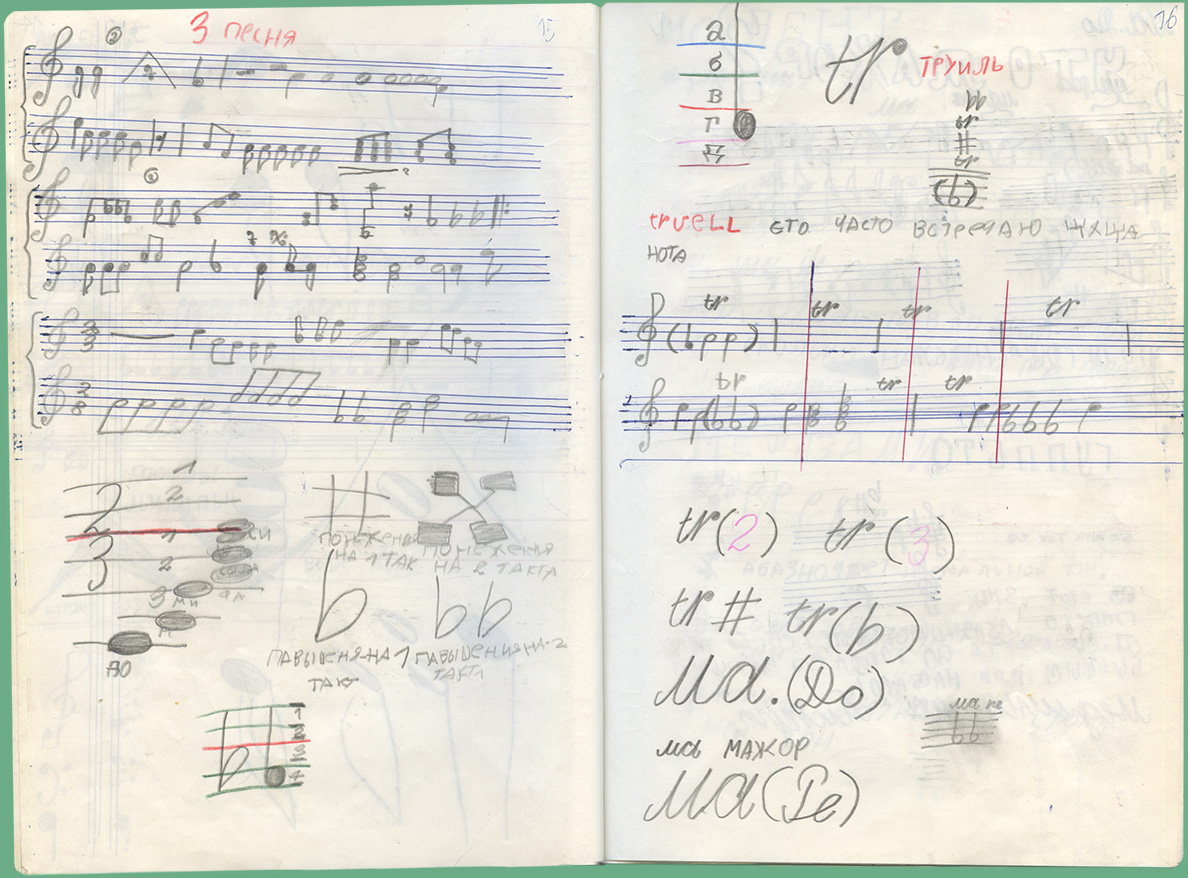 3 песня
15
3
3
3
8
1
2
2
1
3
2
3
СИ
СОЛЬ
МИ
ФА
РЕ
ДО
ПОНЕЖЕНИЯ
НА 1 ТАК
ПОНЕЖЕНИЯ
НА 2 ТАКТА
ПАВЫШЕНЯ НА 1
ТАКТ
ПАВЫШЕНИЯ НА 2
ТАКТА
1
2
3
4
16
а
б
в
г
д
tr
ТРУИЛЬ
tr
#
tr
(b)
truELL ЄТО ЧАСТО ВСТРЕЧАЮ ЩХЦА
НОТА
tr tr tr tr
tr tr tr
tr(2) tr (3)
tr # tr(b)
Ма.(До)
ма ре
ма МАЖОР
Ма(Ре)